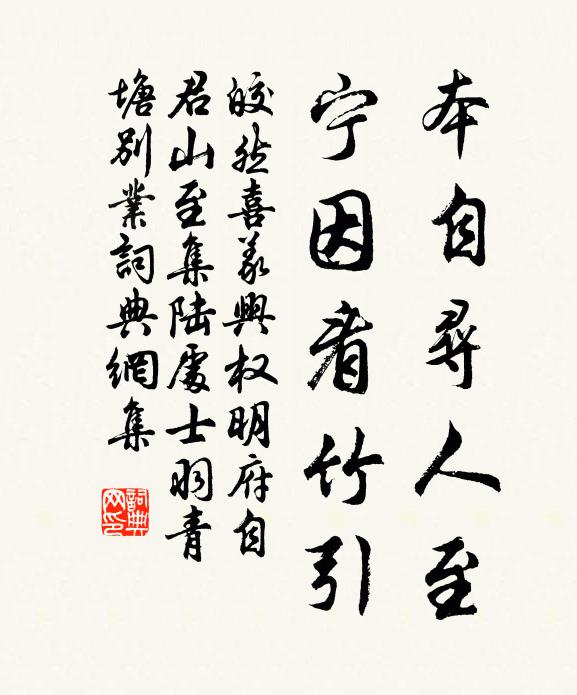 本自尋人至
宁因看竹引
皎然喜義興权明府自
君山至集陆處士羽青
塘别業詞典網集
詞典网印